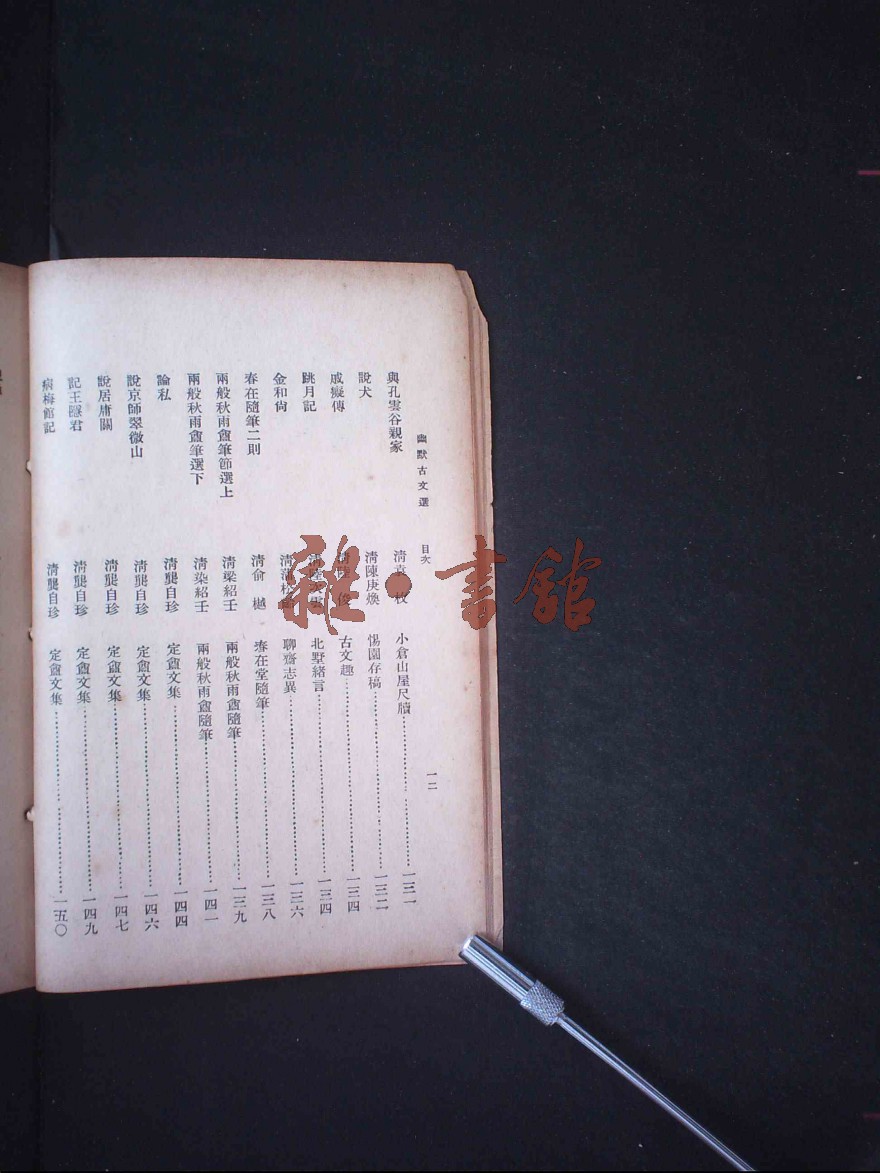 幽默古文選 目次 一二
與孔雲谷親家 清袁枚 小倉山屋尺牘 一三一
說犬 清陳庚煥 惕園存稿 一三二
戚癡傳 清 俊 古文趣 一三四
跳月記 清陸次雲 北墅緒言 一三四
金和尙 清蒲松齡 聊齋志異 一三六
春在隨筆二則 清俞樾 春在堂隨筆 一三八
兩般秋雨盦筆節選上 清梁紹壬 兩般秋雨盦隨筆 一三九
兩般秋雨盦筆選下 清梁紹壬 兩般秋雨盦隨筆 一四一
論私 清龔自珍 定盦文集 一四四
說京師翠微山 清龔自珍 定盦文集 一四六
說居庸關 清龔自珍 定盦文集 一四七
記王隱君 清龔自珍 定盦文集 一四九
病梅館記 清龔自珍 定盦文集 一五〇
雜·書館